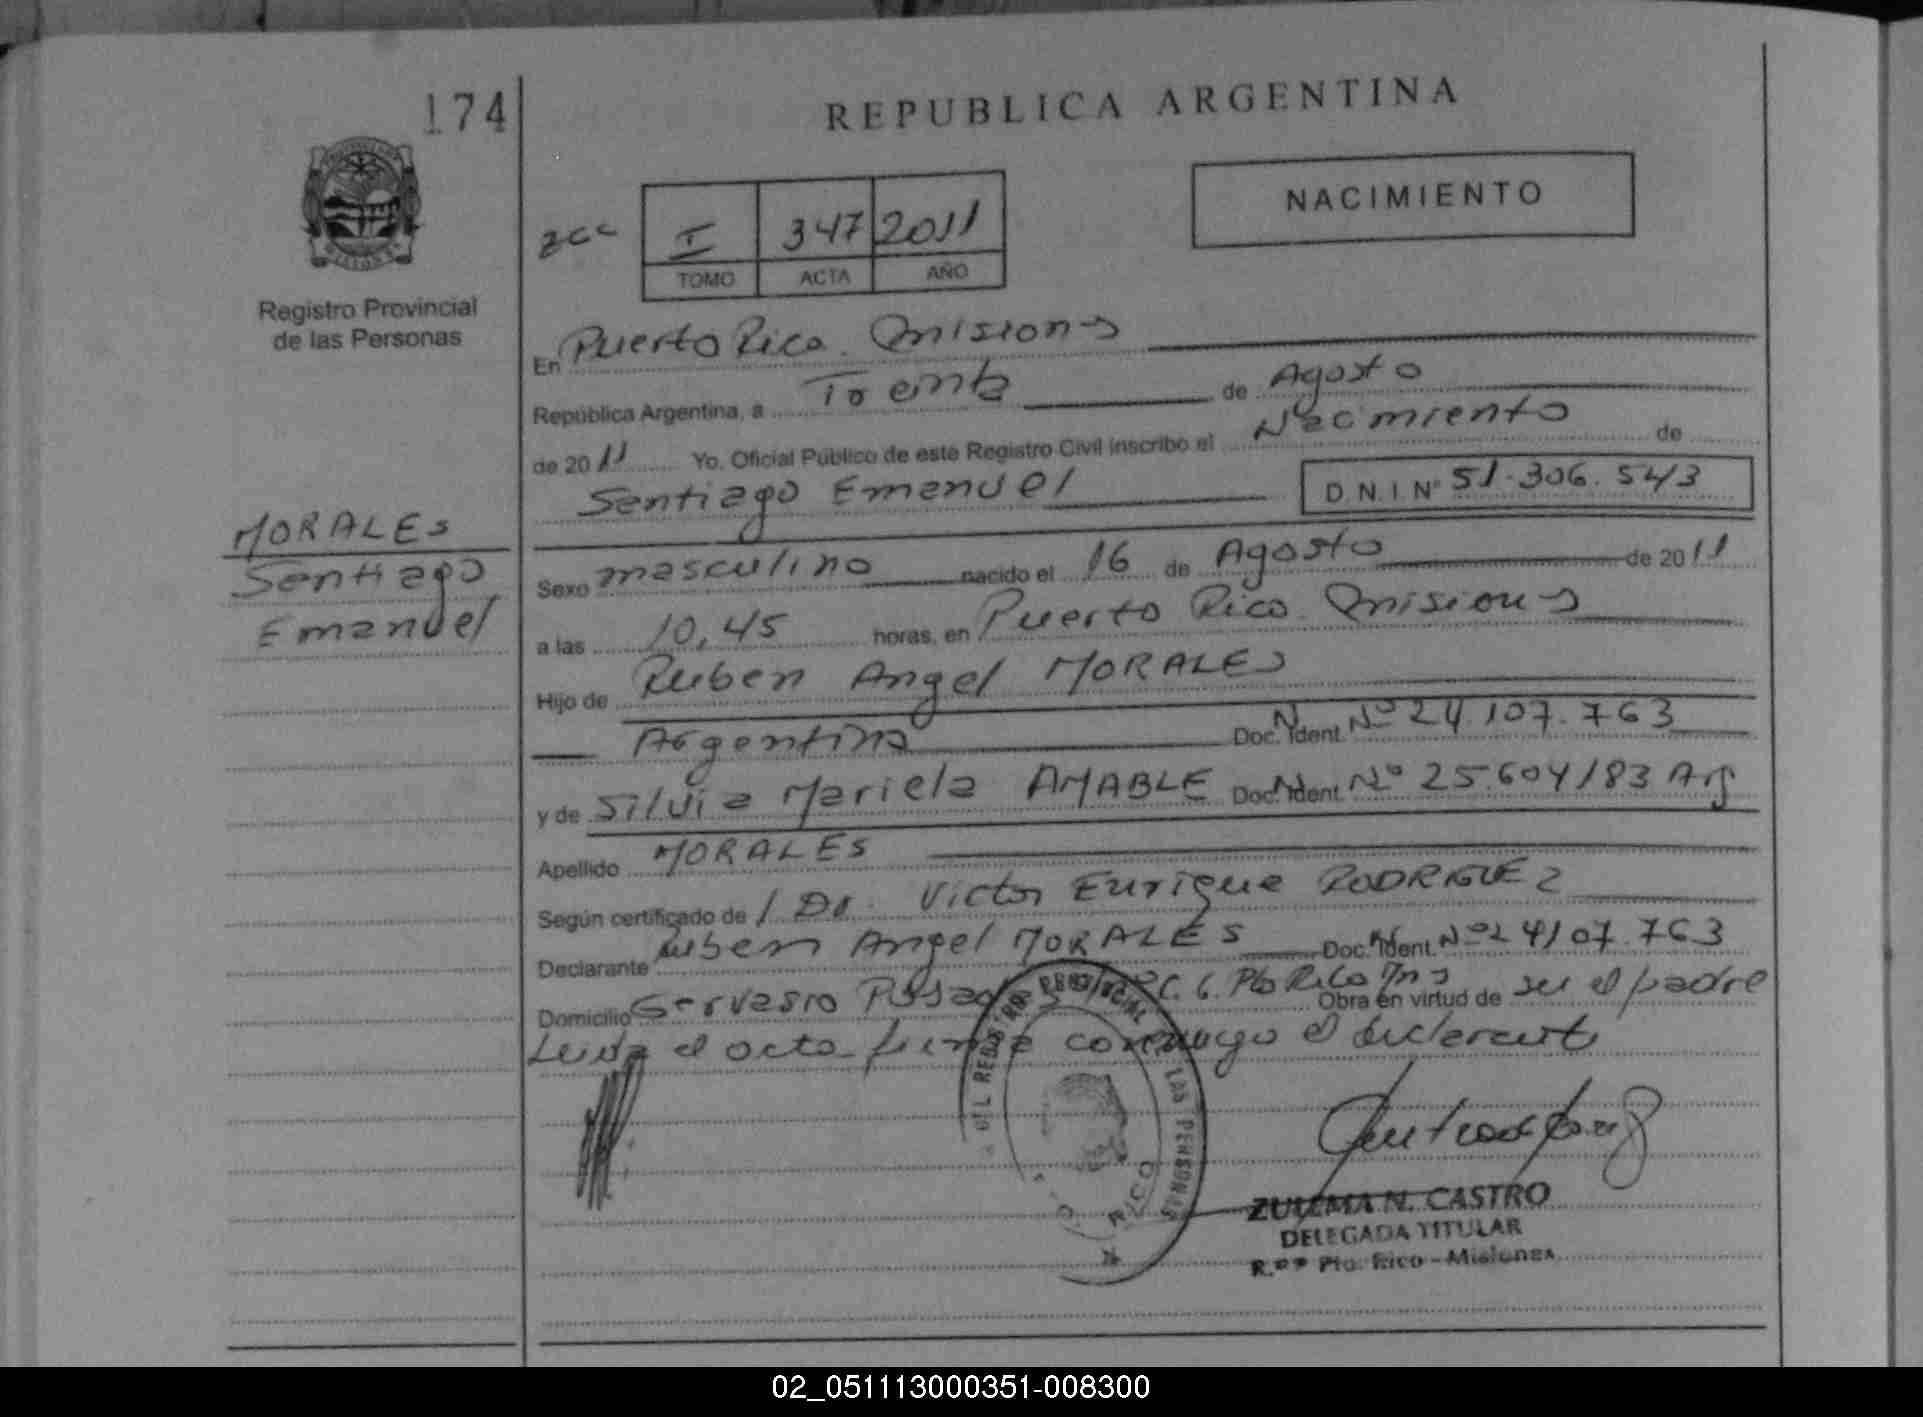 174
REPUBLICA ARGENTINA
NACIMIENTO
I 347 2011
TOMO ACTA AÑO
Registro Provincial
de las Personas
En Puerto Rico. Misiones
República Argentina, a Treinta de Agosto
de 2011 Yo. Oficial Público de este Registro Civil inscribo el Nacimiento de
Santiago Emanuel D.N.I. Nº 51.306.543
MORALES
Santiago
Emanuel
Sexo masculino nacido el 16 de Agosto de 2011
a las 10,45 horas, en Puerto Rico. Misiones
Hijo de Ruben Angel MORALES
Argentina Doc. Ident. Nº 24.107.763
y de Silvia Mariela AMABLE Doc. Ident. Nº 25.604183 Arg
Apellido MORALES
Según certificado de Dr. Victor Enrique RODRIGUEZ
Declarante Ruben Angel MORALES Doc. Ident. Nº 24107.763
Domicilio Gervasio Posadas C. 6. Pto Rico Mns Obra en virtud de ser el padre
Leida el acta firma conmigo el declarante
DEL REGISTRO PROVINCIAL LAS PERSONAS
RICO
ZULEMA N. CASTRO
DELEGADA TITULAR
R.P.P Pto. Rico - Misiones
02_051113000351-008300